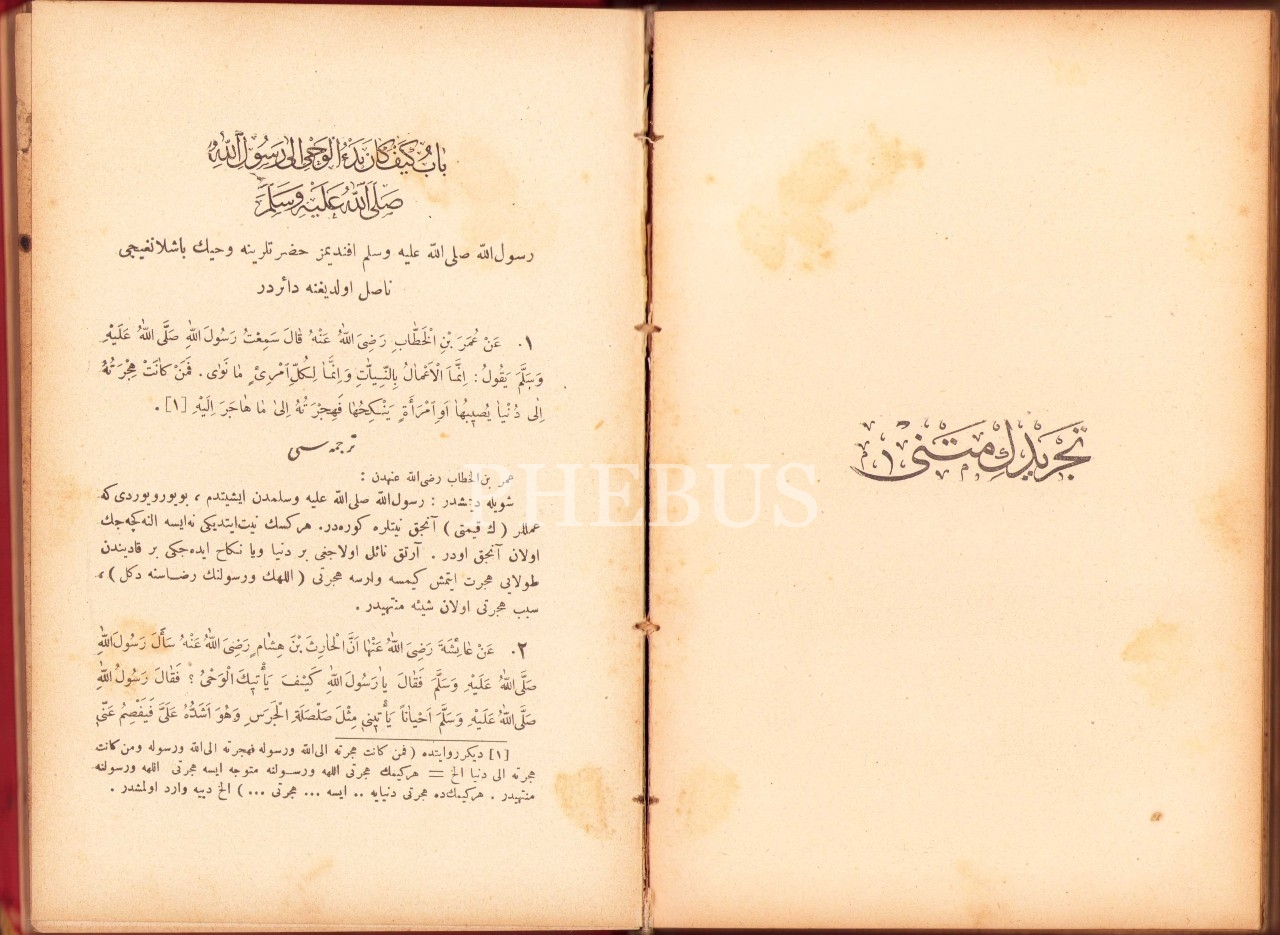 تجريدك متنى
١
باب كيف كان بدء الوحى الى رسول الله
صلى الله عليه وسلم
رسول الله صلى الله عليه وسلم افنديمز حضرتلرينه وحيك باشلانغيجى
ناصل اولديغنه دائردر
١. عَنْ عُمَرَ بْنِ الْخَطَّابِ رَضِىَ اللّٰهُ عَنْهُ قَالَ سَمِعْتُ رَسُولَ اللّٰهِ صَلَّى اللّٰهُ عَلَيْهِ
وَسَلَّمَ يَقُولُ: اِنَّمَا الْاَعْمَالُ بِالنِّيَّاتِ وَاِنَّمَا لِكُلِّ امْرِئٍ مَا نَوٰى. فَمَنْ كَانَتْ هِجْرَتُهُ
اِلٰى دُنْيَا يُصِيبُهَا اَوِ امْرَأَةٍ يَنْكِحُهَا فَهِجْرَتُهُ اِلٰى مَا هَاجَرَ اِلَيْهِ [١].
ترجمه سى
عمر بن الخطاب رضى الله عنهدن :
شويله ديمشدر : رسول الله صلى الله عليه وسلمدن ايشيتدم ، بويورويوردى كه
عمللر (ك قيمتى) آنجق نيتلره كوره در. هركسك نيت ايتديكى نه ايسه النه كچه جك
اولان آنجق اودر . آرتق نائل اولاجغى بر دنيا ويا نكاح ايده جكى بر قاديندن
طولايى هجرت ايتمش كيمسه وارسه هجرتى ( اللهك ورسولنك رضاسنه دكل ) ،
سبب هجرتى اولان شيئه منتهيدر .
٢. عَنْ عَائِشَةَ رَضِىَ اللّٰهُ عَنْهَا اَنَّ الْحَارِثَ بْنَ هِشَامٍ رَضِىَ اللّٰهُ عَنْهُ سَأَلَ رَسُولَ اللّٰهِ
صَلَّى اللّٰهُ عَلَيْهِ وَسَلَّمَ فَقَالَ يَا رَسُولَ اللّٰهِ كَيْفَ يَأْتِيكَ الْوَحْىُ ؟ فَقَالَ رَسُولُ اللّٰهِ
صَلَّى اللّٰهُ عَلَيْهِ وَسَلَّمَ اَحْيَاناً يَأْتِينِى مِثْلَ صَلْصَلَةِ الْجَرَسِ وَهُوَ اَشَدُّهُ عَلَىَّ فَيَفْصِمُ عَنِّى
[١] ديكر روايتده ( فمن كانت هجرته الى الله ورسوله فهجرته الى الله ورسوله ومن كانت
هجرته الى دنيا الخ = هركيمك هجرتى اللهه ورسولنه متوجه ايسه هجرتى اللهه ورسولنه
منتهيدر . هركيمكده هجرتى دنيايه .. ايسه ... هجرتى ... ) الخ دييه وارد اولمشدر .
PHEBUS